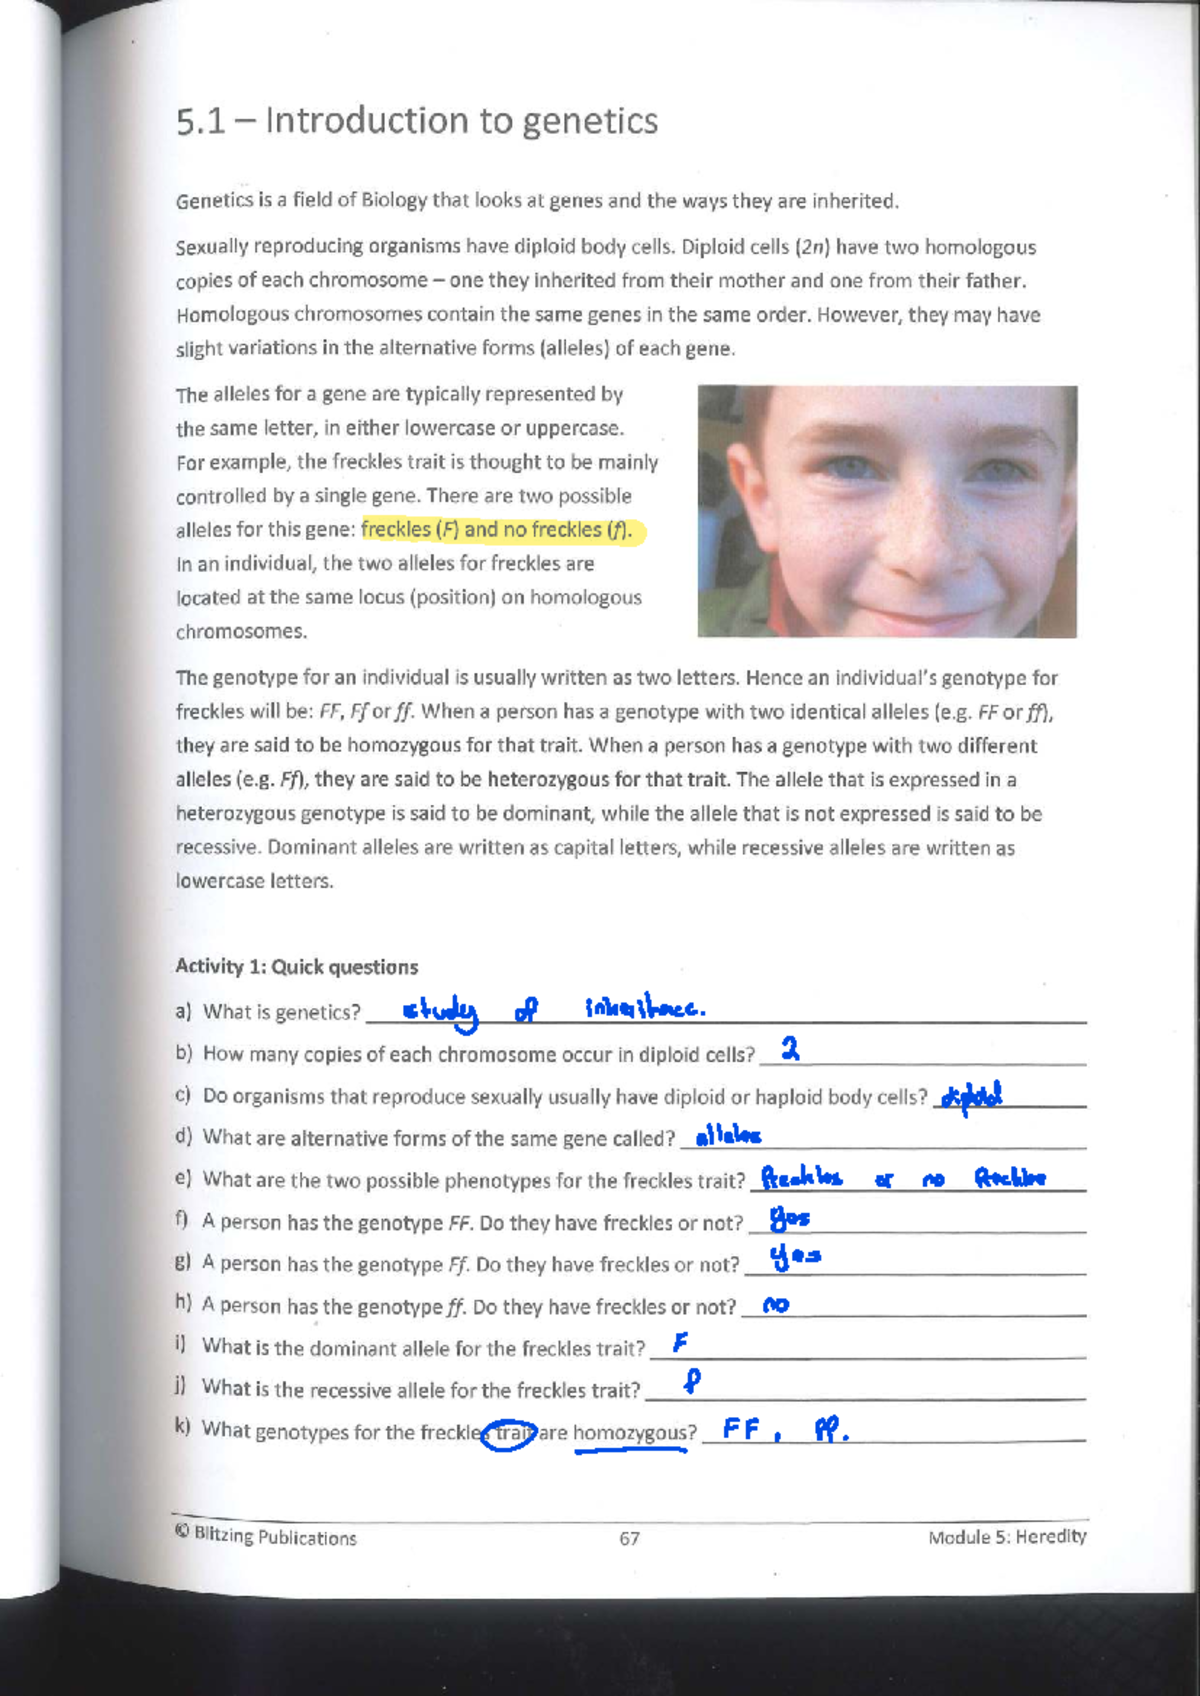 5.1 – Introduction to genetics
Genetics is a field of Biology that looks at genes and the ways they are inherited.
Sexually reproducing organisms have diploid body cells. Diploid cells (2n) have two homologous
copies of each chromosome – one they inherited from their mother and one from their father.
Homologous chromosomes contain the same genes in the same order. However, they may have
slight variations in the alternative forms (alleles) of each gene.
The alleles for a gene are typically represented by
the same letter, in either lowercase or uppercase.
For example, the freckles trait is thought to be mainly
controlled by a single gene. There are two possible
alleles for this gene: freckles (F) and no freckles (f).
In an individual, the two alleles for freckles are
located at the same locus (position) on homologous
chromosomes.
The genotype for an individual is usually written as two letters. Hence an individual's genotype for
freckles will be: FF, Ff or ff. When a person has a genotype with two identical alleles (e.g. FF or ff),
they are said to be homozygous for that trait. When a person has a genotype with two different
alleles (e.g. Ff), they are said to be heterozygous for that trait. The allele that is expressed in a
heterozygous genotype is said to be dominant, while the allele that is not expressed is said to be
recessive. Dominant alleles are written as capital letters, while recessive alleles are written as
lowercase letters.
Activity 1: Quick questions
a) What is genetics? study of inheritance.
b) How many copies of each chromosome occur in diploid cells? 2
c) Do organisms that reproduce sexually usually have diploid or haploid body cells? diploid
d) What are alternative forms of the same gene called? alleles
e) What are the two possible phenotypes for the freckles trait? freckles or no freckles
f) A person has the genotype FF. Do they have freckles or not? yes
g) A person has the genotype Ff. Do they have freckles or not? yes
h) A person has the genotype ff. Do they have freckles or not? no
i) What is the dominant allele for the freckles trait? F
j) What is the recessive allele for the freckles trait? f
k) What genotypes for the freckles trait are homozygous? FF, ff.
© Blitzing Publications 67 Module 5: Heredity